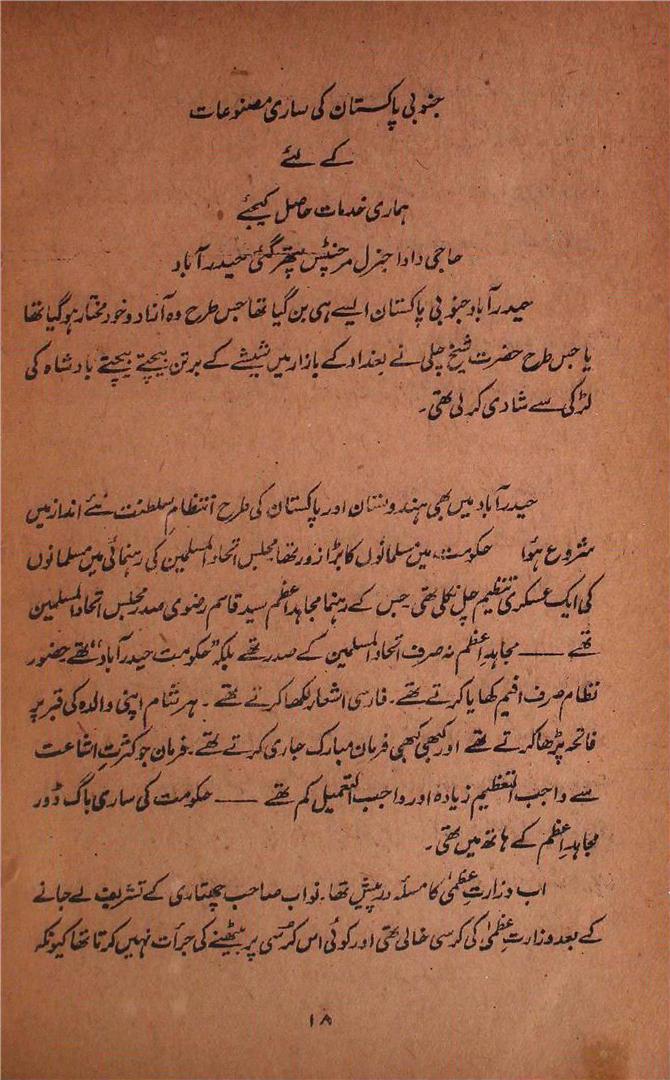 جنوبی پاکستان کی ساری مصنوعات
کے لئے
ہماری خدمات حاصل کیجئے
حاجی دادا جنرل مرچنٹس پتھر گٹی حیدر آباد
حیدر آباد جنوبی پاکستان ایسے ہی بن گیا تھا جس طرح وہ آزاد و خود مختار ہو گیا تھا
یا جس طرح حضرت شیخ چلی نے بغداد کے بازار میں شیشے کے برتن بیچتے بیچتے بادشاہ کی
لڑکی سے شادی کر لی تھی۔
حیدر آباد میں بھی ہندوستان اور پاکستان کی طرح انتظام سلطنت نئے انداز میں
شروع ہوا حکومت میں مسلمانوں کا بڑا زور تھا مجلس اتحاد المسلمین کی رہنمائی میں مسلمانوں
کی ایک عسکری تنظیم چل نکلی تھی جس کے رہنما مجاہد اعظم سید قاسم رضوی صدر مجلس اتحاد المسلمین
تھے —— مجاہد اعظم نہ صرف اتحاد المسلمین کے صدر تھے بلکہ "حکومت حیدر آباد" تھے حضور
نظام صرف افیم کھایا کرتے تھے۔ فارسی اشعار لکھا کرتے تھے۔ ہر شام اپنی والدہ کی قبر پر
فاتحہ پڑھا کرتے تھے اور کبھی کبھی فرمان مبارک جاری کرتے تھے۔ فرمان جو کثرتِ اشاعت
سے واجب التعظیم زیادہ اور واجب التعمیل کم تھے —— حکومت کی ساری باگ ڈور
مجاہدِ اعظم کے ہاتھ میں تھی۔
اب وزارتِ عظمیٰ کا مسئلہ درپیش تھا۔ نواب صاحب چھتاری کے تشریف لے جانے
کے بعد وزارتِ عظمیٰ کی کرسی خالی تھی اور کوئی اس کرسی پر بیٹھنے کی جرأت نہیں کرتا تھا کیونکہ
۱۸